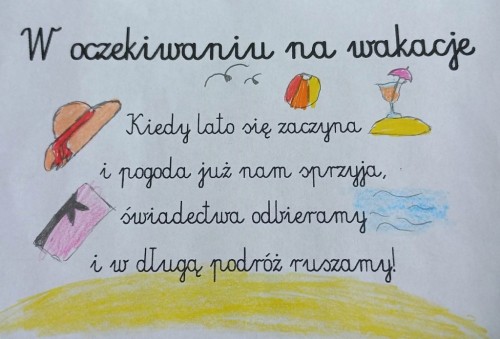 W oczekiwaniu na wakacje
Kiedy lato się zaczyna
i pogoda już nam sprzyja,
świadectwa odbieramy
i w długą podróż ruszamy!